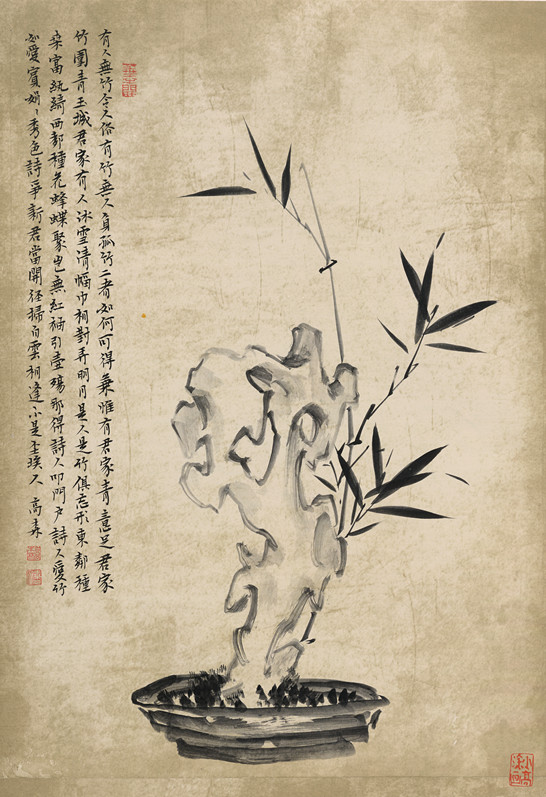 有人無竹令人俗有竹無人負孤竹二者如何可得兼惟有君家青意足君家
竹圍青玉城君家有人冰雪清幅巾相對弄明月是人是竹俱忘形東鄰種
桑富紈綺西鄰種花蜂蝶聚豈無紅袖引壺觴那得詩人叩門戶詩人愛竹
必愛賓娟〻秀色詩爭新君當開徑掃白雲相逢不是塵埃人 高森